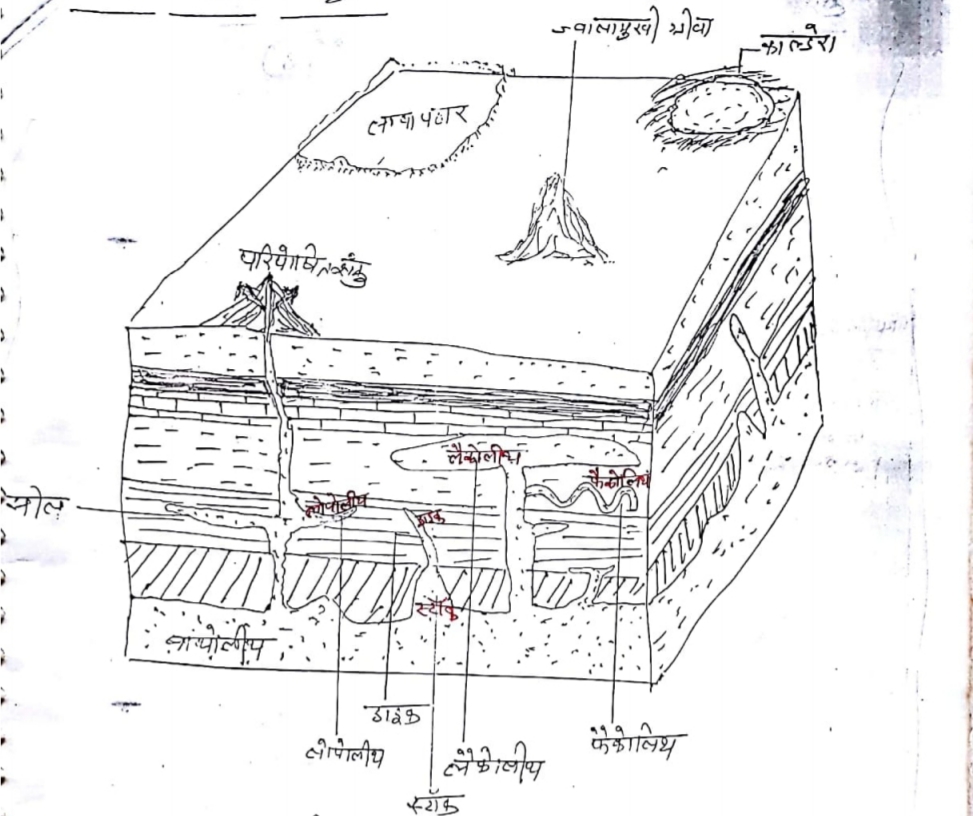 ज्वालामुखी ग्रीवा
काल्डेरा
लावा पठार
परिपोषित शंकु
लैकोलीथ
फैकोलिथ
लोपोलीथ
डाइक
स्टॉक
बाथोलीथ
डाइक
लोपोलीथ
लैकोलीथ
फैकोलिथ
स्टॉक